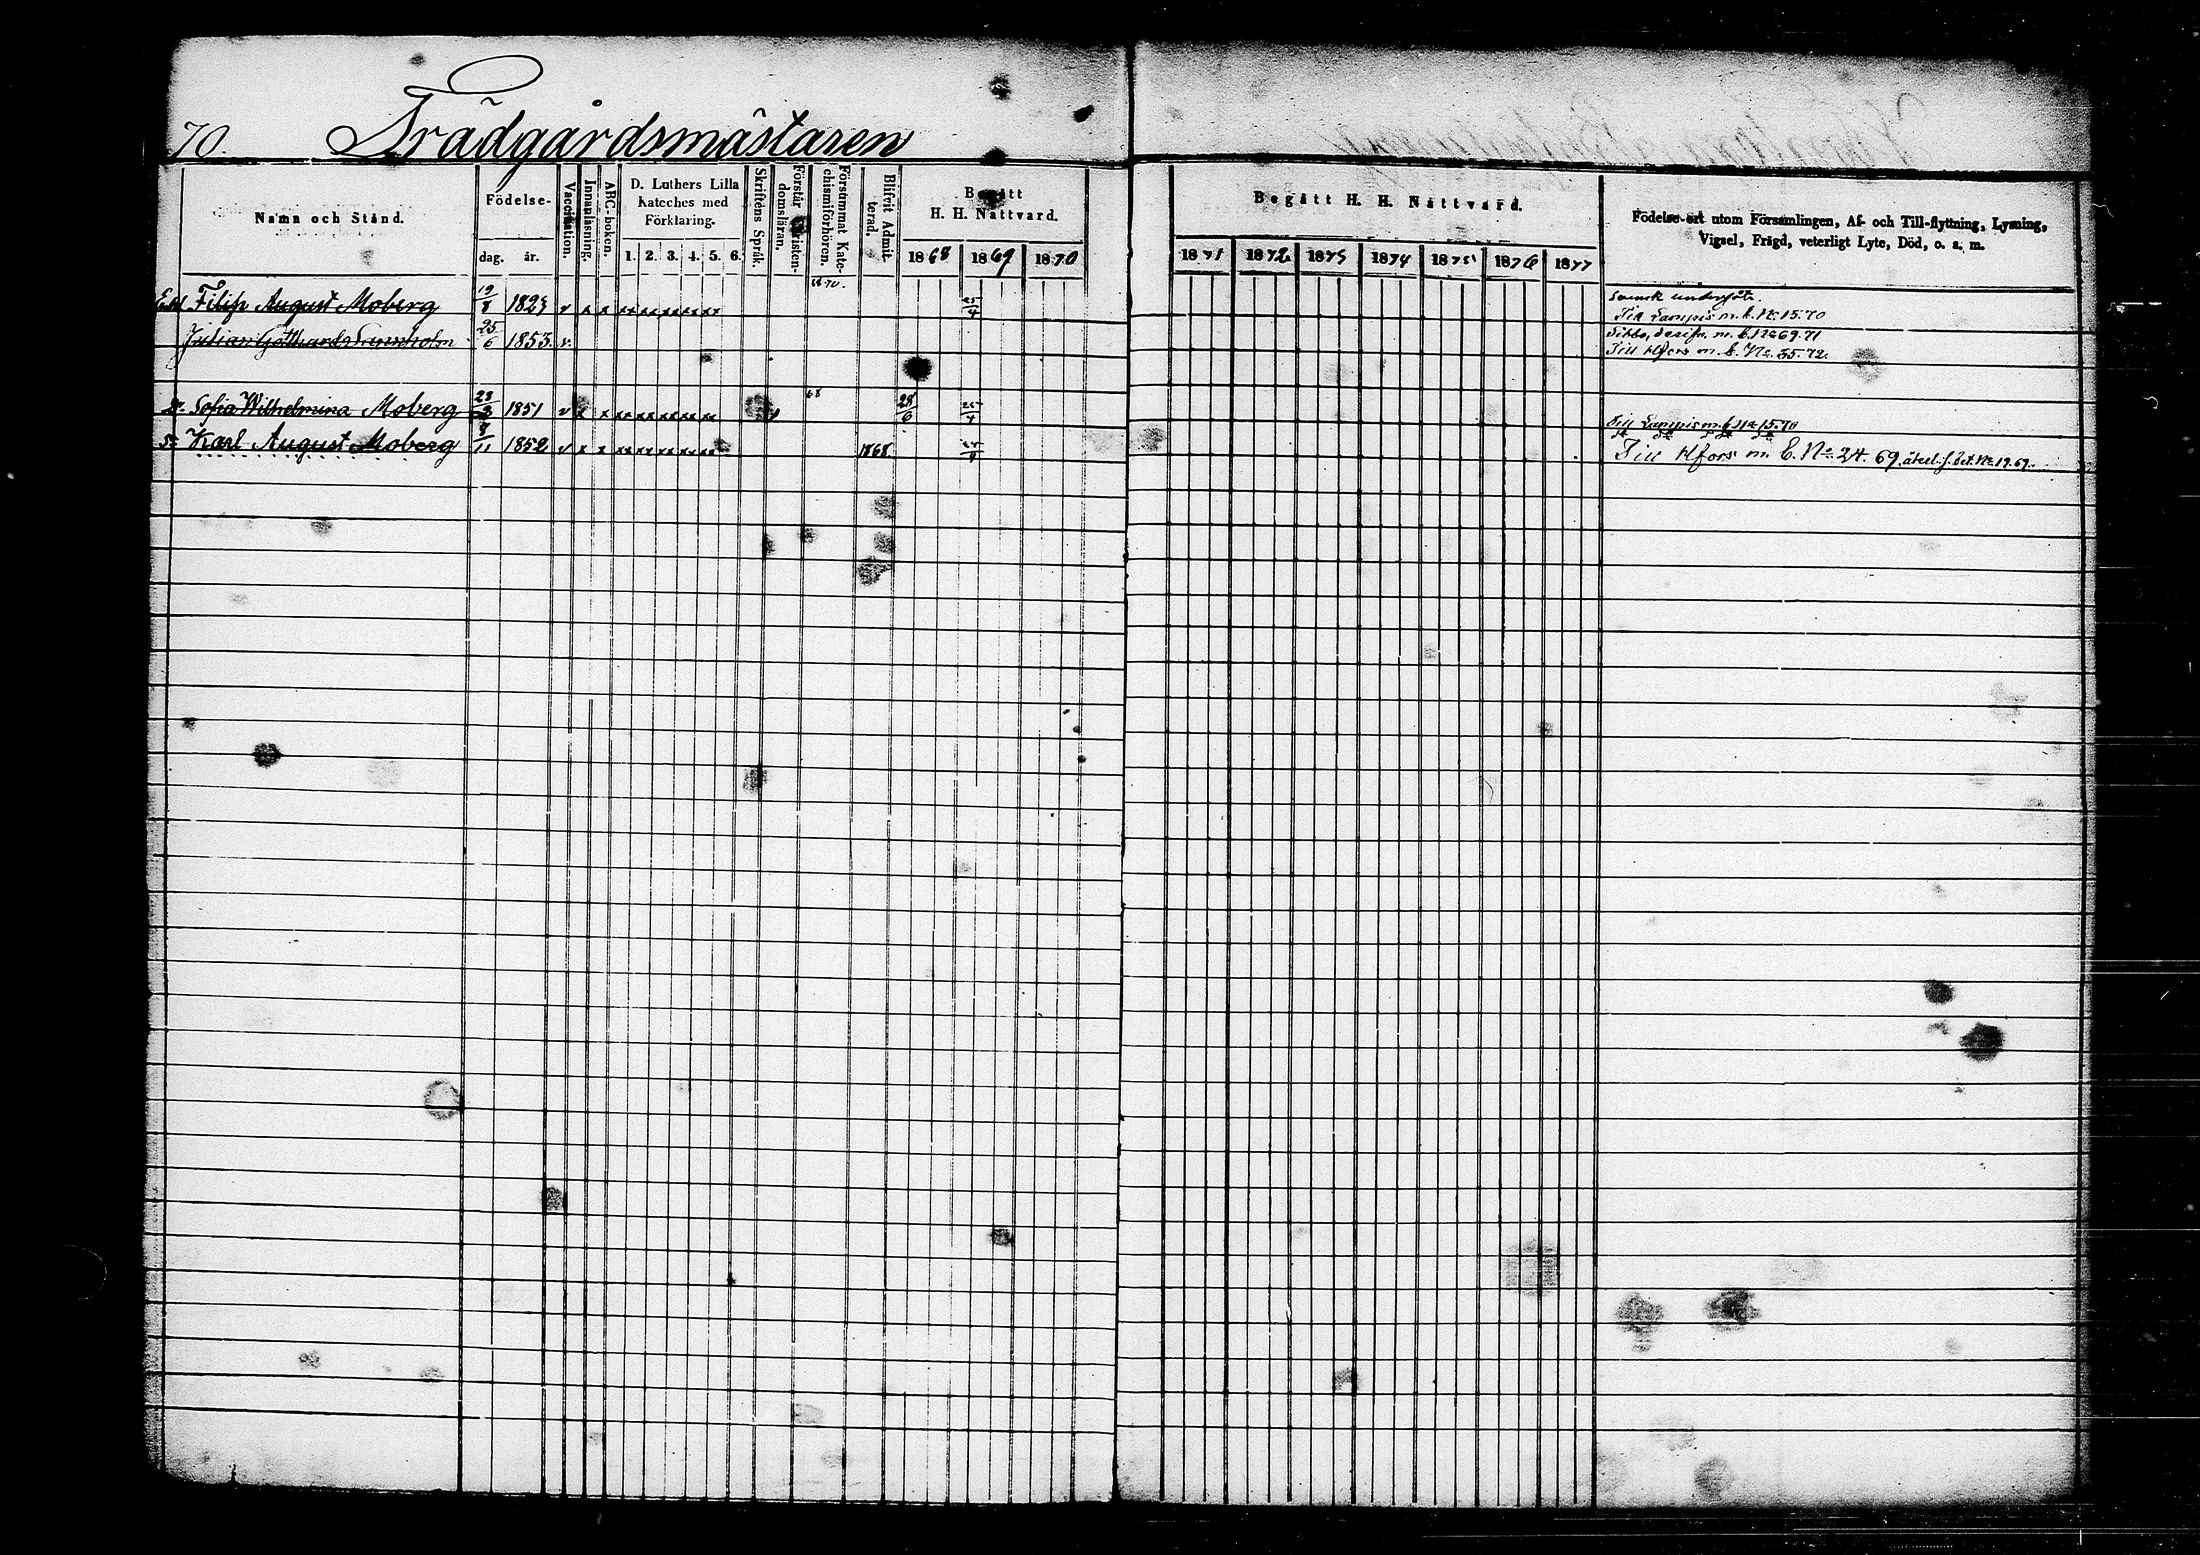 70. Trädgårdsmästaren
Namn och Stånd.
Födelse-
dag. år.
Vaccination.
Innanläsning.
ABC-boken.
D. Luthers Lilla
Kateches med
Förklaring.
1. 2. 3. 4. 5. 6.
Skriftens Språk.
Förstår Christen-
domsläran.
Försummat Kate-
chismiförhören.
Blifvit Admit-
terad.
Begått
H. H. Nattvard.
1868 1869 1870
Begått H. H. Nattvard.
1871 1872 1873 1874 1875 1876 1877
Födelse-ort utom Församlingen, Af- och Till-flyttning, Lysning,
Vigsel, Frägd, veterligt Lyte, Död, o. s. m.
Filip August Moberg 19/8 1823 v x x 68 70. 25/4 Svensk undersåte.
Till Lampis m. b. No 15. 70
Julian Gotthard 25/6 1853 v. Sibbo, m. b. No 69. 71
Till Hfors m. b. No. 35. 72.
D. Sofia Wilhelmina Moberg 1851 v x x 68 28/6 25/4 Till Lampis m. b. No 15. 70
Sn Karl August Moberg 8/11 1852 v x x 1868. Till Hfors m. b. No. 24. 69,